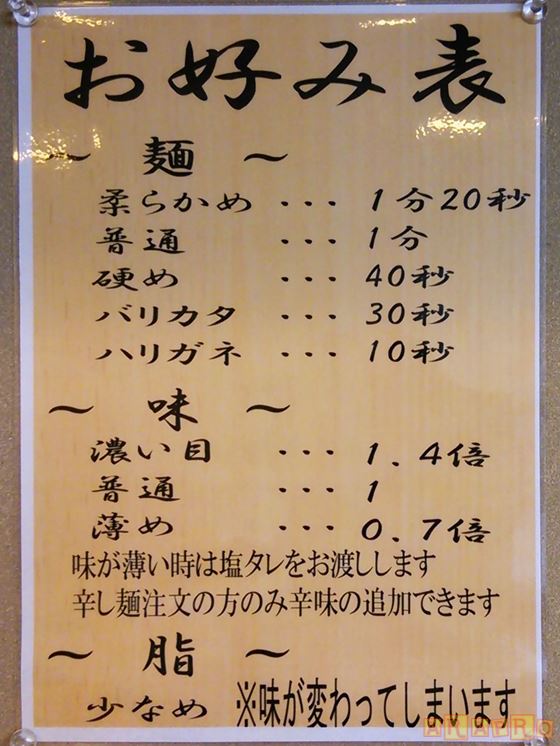 お好み表
〜 麺 〜
柔らかめ ・・・ 1分20秒
普通 ・・・ 1分
硬め ・・・ 40秒
バリカタ ・・・ 30秒
ハリガネ ・・・ 10秒
〜 味 〜
濃い目 ・・・ 1.4倍
普通 ・・・ 1
薄め ・・・ 0.7倍
味が薄い時は塩タレをお渡しします
辛し麺注文の方のみ辛味の追加できます
〜 脂 〜
少なめ ※味が変わってしまいます
AKAPRO